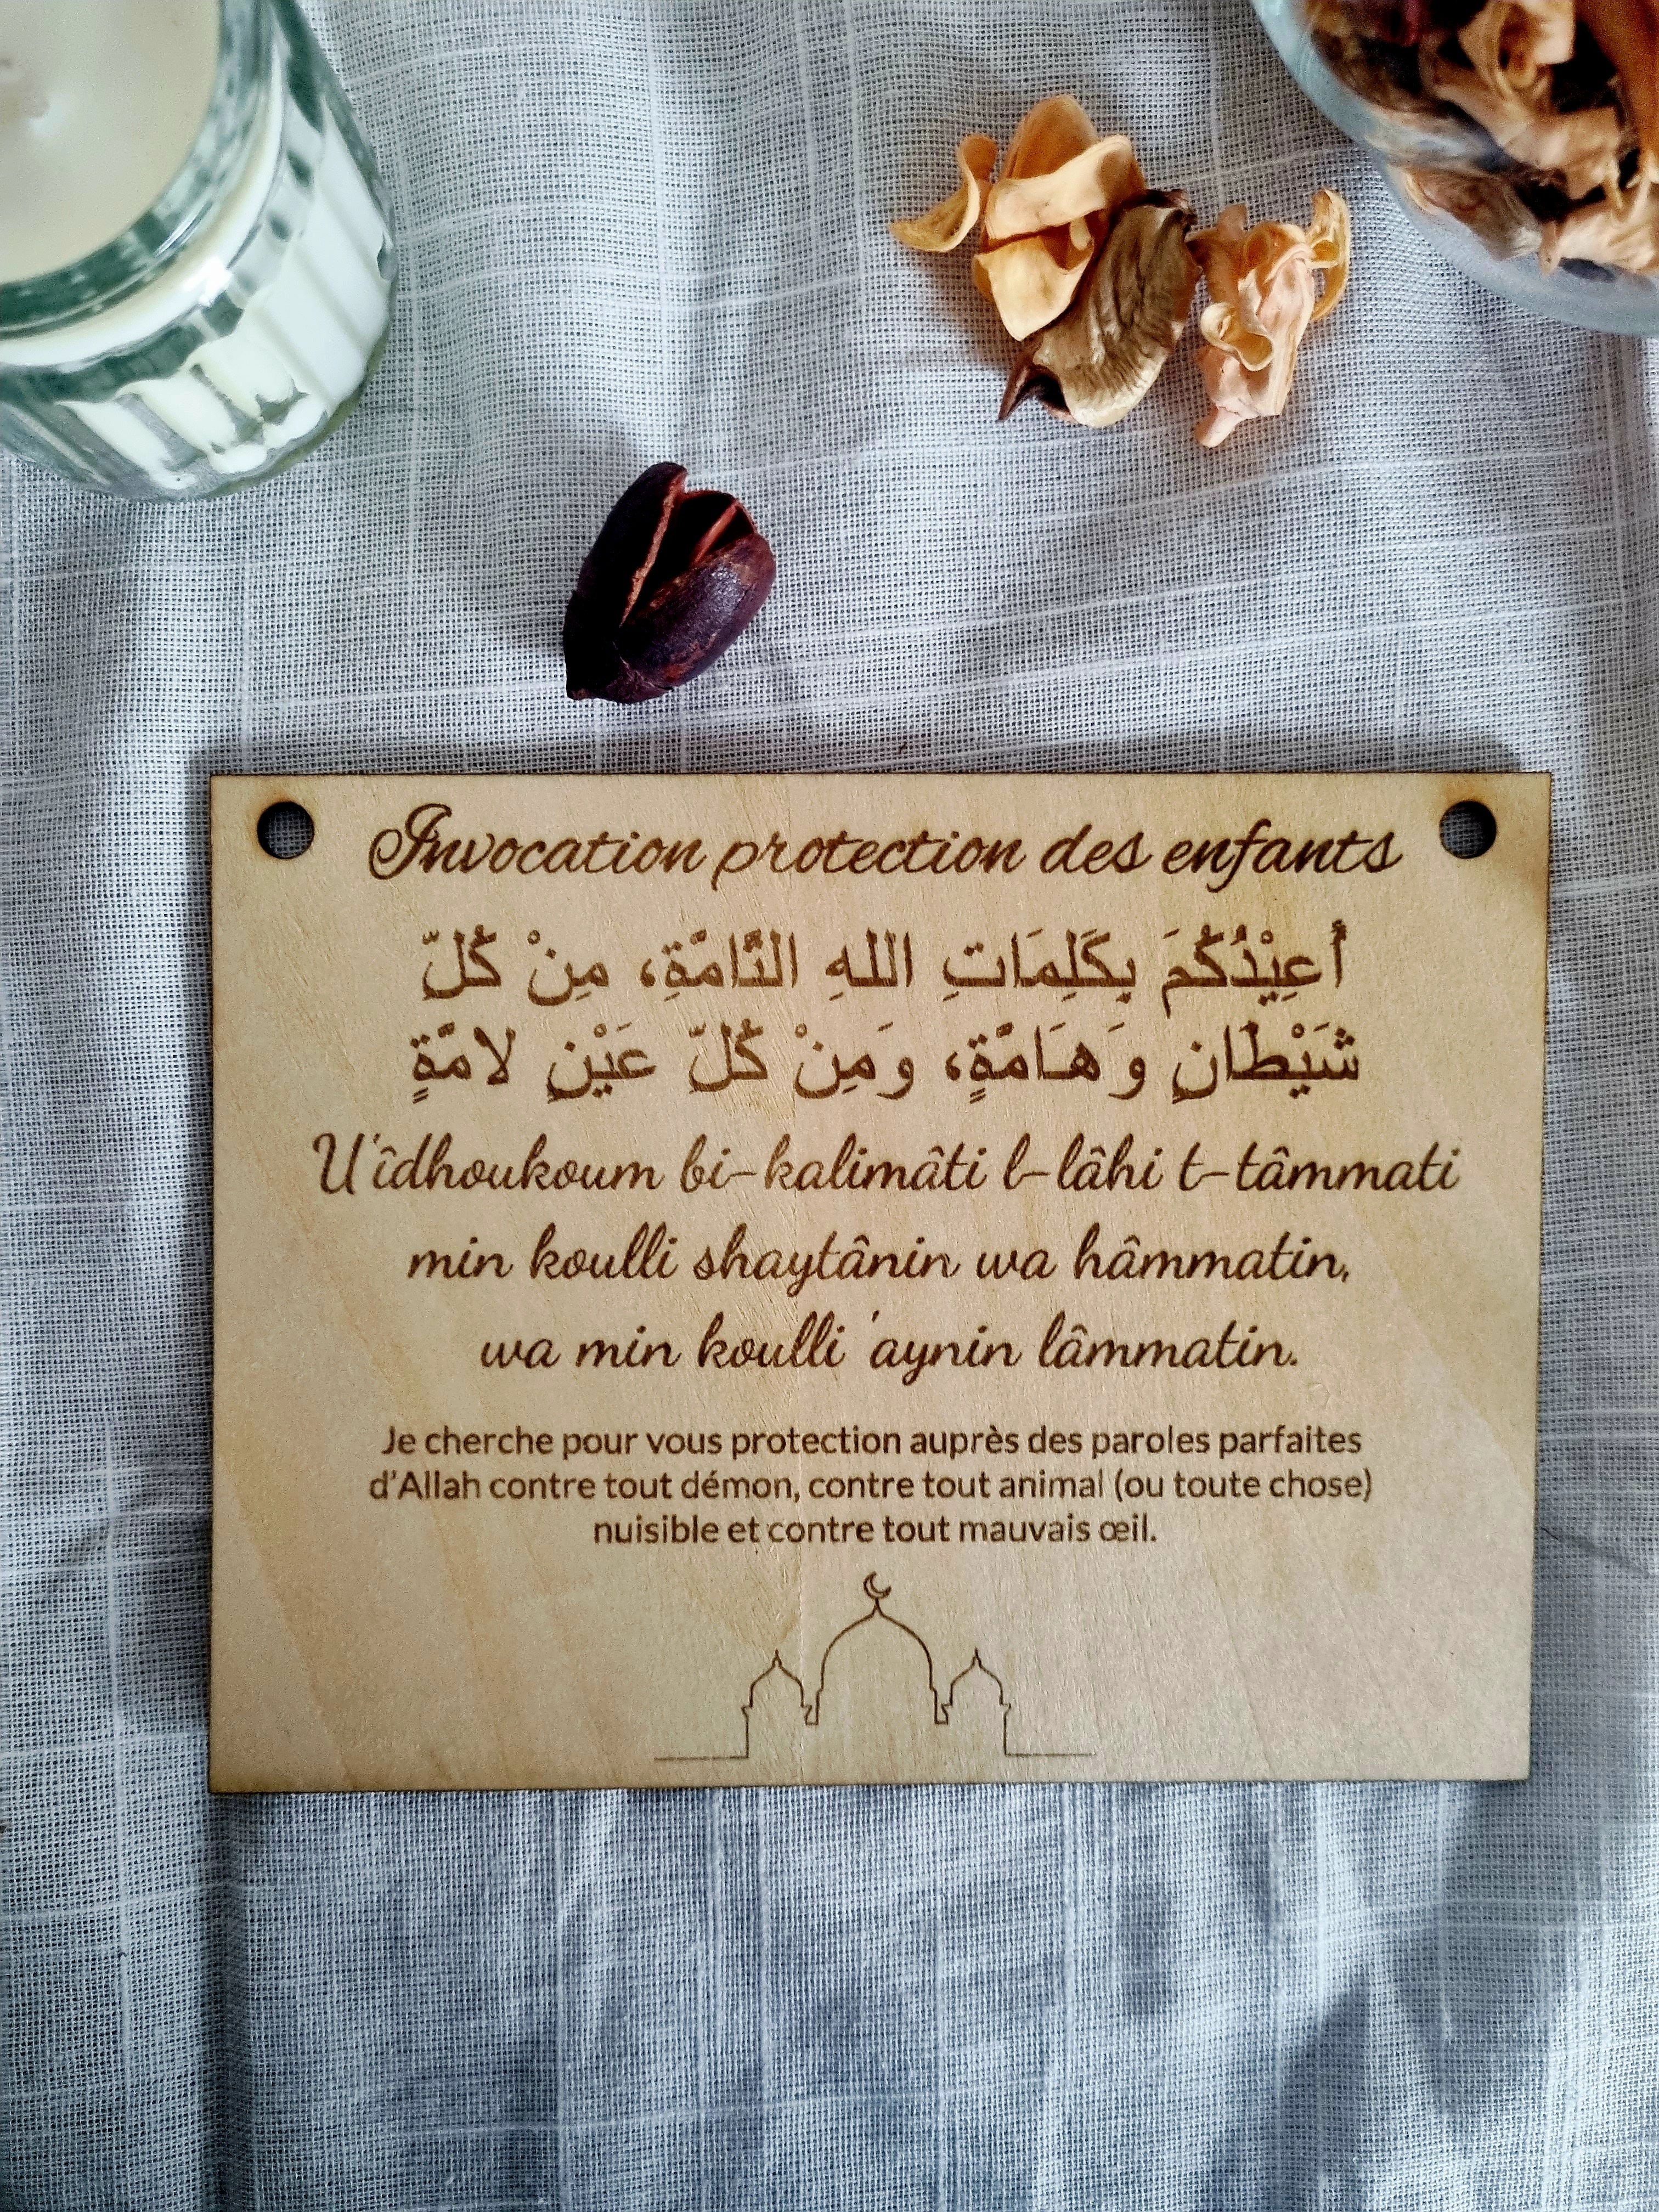 Invocation protection des enfants
أُعِيْذُكُمَ بِكَلِمَاتِ اللهِ التَّامَّةِ، مِنْ كُلِّ
شَيْطَانٍ وَهَامَّةٍ، وَمِنْ كُلِّ عَيْنٍ لامَّةٍ
U'îdhoukoum bi-kalimâti l-lâhi t-tâmmati
min koulli shaytânin wa hâmmatin,
wa min koulli 'aynin lâmmatin.
Je cherche pour vous protection auprès des paroles parfaites
d'Allah contre tout démon, contre tout animal (ou toute chose)
nuisible et contre tout mauvais œil.